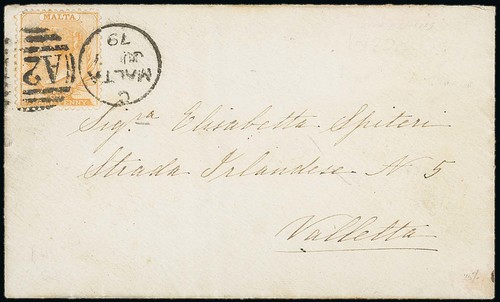 MALTA
PENNY
A25
MALTA
C
79
Sigra Elisabetta Spiteri
Strada Irlandese N 5
Valletta